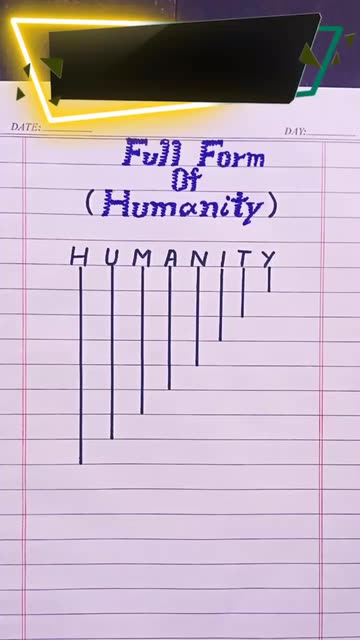 DATE:
DAY:
Full Form
Of
(Humanity)
H U M A N I T Y